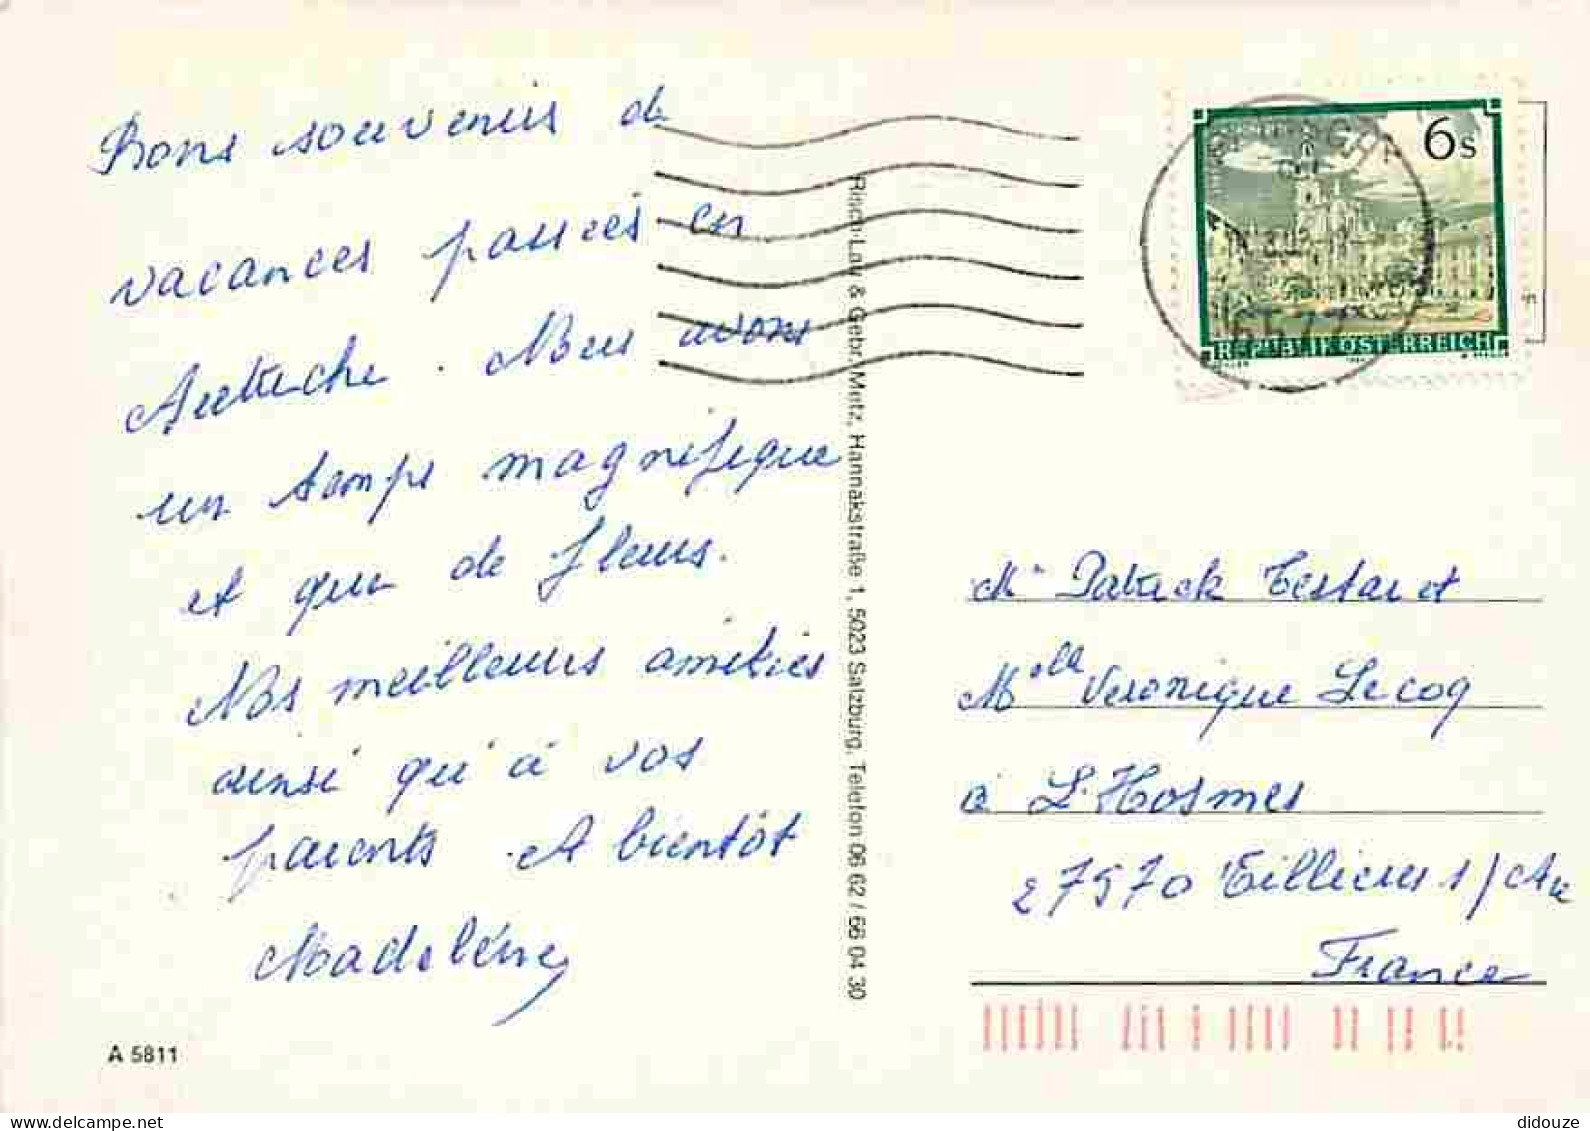 Bons souvenirs de
vacances passées en
Autriche. Nous avons
un temps magnifique
et que de fleurs.
Nos meilleurs amitiés
ainsi qu'à vos
parents. A bientôt
Madeleine
A 5811
Risch-Lau & Gebr. Metz, Hannakstraße 1, 5023 Salzburg, Telefon 06 62 / 66 04 30
6s
REPUBLIK ÖSTERREICH
Mr Patrick Testard et
Melle Véronique Lecoq
à L'Hosmes
27570 Tillieres s/Avre
France
www.delcampe.net
didouze